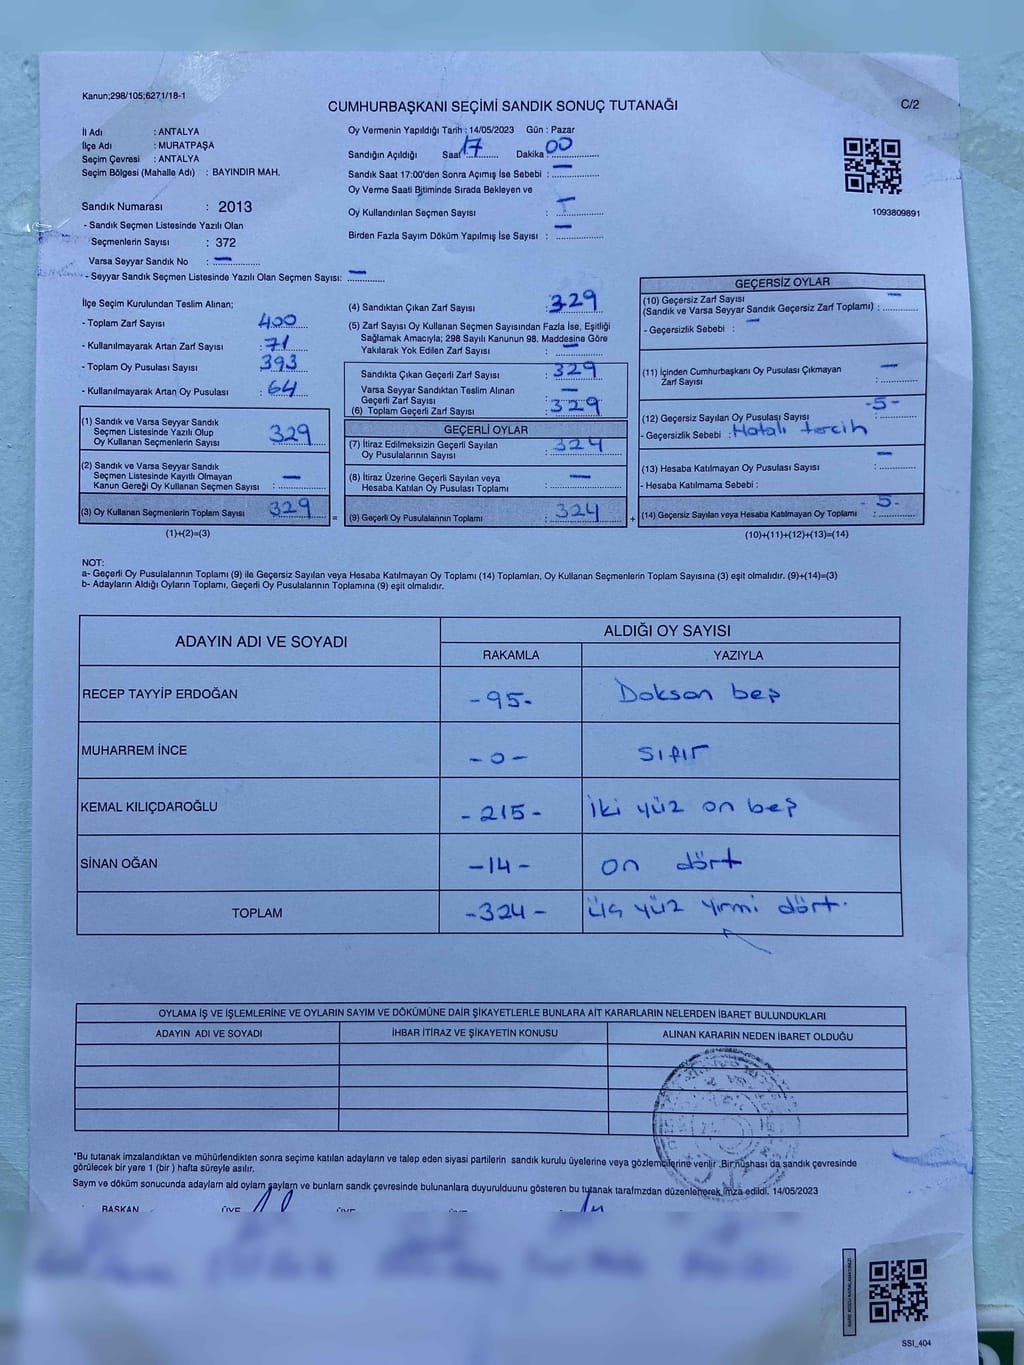 Kanun;298/105;6271/18-1
CUMHURBAŞKANI SEÇİMİ SANDIK SONUÇ TUTANAĞI
C/2
İl Adı : ANTALYA
İlçe Adı : MURATPAŞA
Seçim Çevresi : ANTALYA
Seçim Bölgesi (Mahalle Adı) : BAYINDIR MAH.
Sandık Numarası : 2013
- Sandık Seçmen Listesinde Yazılı Olan
Seçmenlerin Sayısı : 372
Varsa Seyyar Sandık No : —
- Seyyar Sandık Seçmen Listesinde Yazılı Olan Seçmen Sayısı: —
Oy Vermenin Yapıldığı Tarih : 14/05/2023 Gün : Pazar
Sandığın Açıldığı Saat 17 Dakika 00
Sandık Saat 17:00'den Sonra Açımış İse Sebebi : —
Oy Verme Saati Bitiminde Sırada Bekleyen ve
Oy Kullandırılan Seçmen Sayısı : —
Birden Fazla Sayım Döküm Yapılmış İse Sayısı : —
1093809891
İlçe Seçim Kurulundan Teslim Alınan;
- Toplam Zarf Sayısı : 400
- Kullanılmayarak Artan Zarf Sayısı : 71
- Toplam Oy Pusulası Sayısı : 393
- Kullanılmayarak Artan Oy Pusulası : 64
(1) Sandık ve Varsa Seyyar Sandık
Seçmen Listesinde Yazılı Olup
Oy Kullanan Seçmenlerin Sayısı : 329
(2) Sandık ve Varsa Seyyar Sandık
Seçmen Listesinde Kayıtlı Olmayan
Kanun Gereği Oy Kullanan Seçmen Sayısı : —
(3) Oy Kullanan Seçmenlerin Toplam Sayısı : 329
(1)+(2)=(3)
(4) Sandıktan Çıkan Zarf Sayısı : 329
(5) Zarf Sayısı Oy Kullanan Seçmen Sayısından Fazla İse, Eşitliği
Sağlamak Amacıyla; 298 Sayılı Kanunun 98. Maddesine Göre
Yakılarak Yok Edilen Zarf Sayısı : —
Sandıkta Çıkan Geçerli Zarf Sayısı : 329
Varsa Seyyar Sandıktan Teslim Alınan
Geçerli Zarf Sayısı : —
(6) Toplam Geçerli Zarf Sayısı : 329
GEÇERLİ OYLAR
(7) İtiraz Edilmeksizin Geçerli Sayılan
Oy Pusulalarının Sayısı : 324
(8) İtiraz Üzerine Geçerli Sayılan veya
Hesaba Katılan Oy Pusulası Toplamı : —
= (9) Geçerli Oy Pusulalarının Toplamı : 324
GEÇERSİZ OYLAR
(10) Geçersiz Zarf Sayısı
(Sandık ve Varsa Seyyar Sandık Geçersiz Zarf Toplamı) : —
- Geçersizlik Sebebi : —
(11) İçinden Cumhurbaşkanı Oy Pusulası Çıkmayan
Zarf Sayısı : —
(12) Geçersiz Sayılan Oy Pusulası Sayısı : -5-
- Geçersizlik Sebebi : Hatalı tercih
(13) Hesaba Katılmayan Oy Pusulası Sayısı : —
- Hesaba Katılmama Sebebi :
+ (14) Geçersiz Sayılan veya Hesaba Katılmayan Oy Toplamı : -5-
(10)+(11)+(12)+(13)=(14)
NOT:
a- Geçerli Oy Pusulalarının Toplamı (9) ile Geçersiz Sayılan veya Hesaba Katılmayan Oy Toplamı (14) Toplamları, Oy Kullanan Seçmenlerin Toplam Sayısına (3) eşit olmalıdır. (9)+(14)=(3)
b- Adayların Aldığı Oyların Toplamı, Geçerli Oy Pusulalarının Toplamına (9) eşit olmalıdır.
ADAYIN ADI VE SOYADI
ALDIĞI OY SAYISI
RAKAMLA YAZIYLA
RECEP TAYYİP ERDOĞAN -95- Doksan beş
MUHARREM İNCE -0- sıfır
KEMAL KILIÇDAROĞLU -215- İki yüz on beş
SİNAN OĞAN -14- on dört
TOPLAM -324- üç yüz yirmi dört.
OYLAMA İŞ VE İŞLEMLERİNE VE OYLARIN SAYIM VE DÖKÜMÜNE DAİR ŞİKAYETLERLE BUNLARA AİT KARARLARIN NELERDEN İBARET BULUNDUKLARI
ADAYIN ADI VE SOYADI İHBAR İTİRAZ VE ŞİKAYETİN KONUSU ALINAN KARARIN NEDEN İBARET OLDUĞU
*Bu tutanak imzalandıktan ve mühürlendikten sonra seçime katılan adayların ve talep eden siyasi partilerin sandık kurulu üyelerine veya gözlemcilerine verilir .Bir nüshası da sandık çevresinde
görülecek bir yere 1 (bir ) hafta süreyle asılır.
Sayım ve döküm sonucunda adayların aldı oyların sayların ve bunların sandk çevresinde bulunanlara duyurulduunu gösteren bu tutanak tarafmzdan düzenlenerek imza edildi. 14/05/2023
BAŞKAN ÜYE ÜYE ÜYE
SSI_404